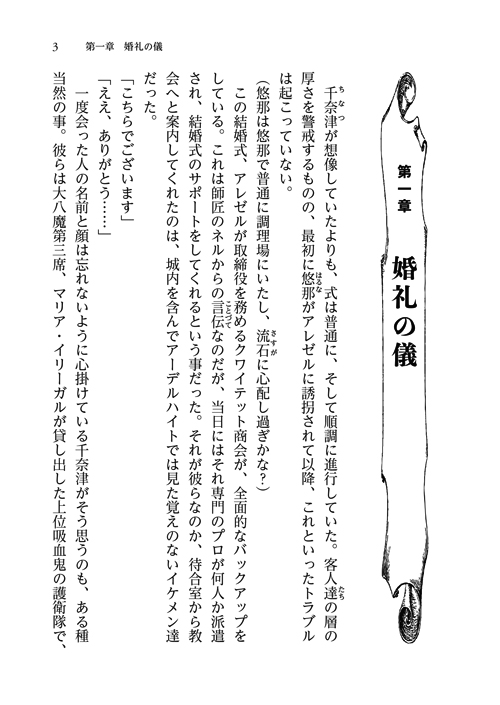 3　第一章　婚礼の儀
第一章
婚礼の儀
　千奈津が想像していたよりも、式は普通に、そして順調に進行していた。客人達の層の
厚さを警戒するものの、最初に悠那がアレゼルに誘拐されて以降、これといったトラブル
は起こっていない。
（悠那は悠那で普通に調理場にいたし、流石に心配し過ぎかな？）
　この結婚式、アレゼルが取締役を務めるクワイテット商会が、全面的なバックアップを
している。これは師匠のネルからの言伝なのだが、当日にはそれ専門のプロが何人か派遣
され、結婚式のサポートをしてくれるという事だった。それが彼らなのか、待合室から教
会へと案内してくれたのは、城内を含んでアーデルハイトでは見た覚えのないイケメン達
だった。
「こちらでございます」
「ええ、ありがとう……」
　一度会った人の名前と顔は忘れないように心掛けている千奈津がそう思うのも、ある種
当然の事。彼らは大八魔第三席、マリア・イリーガルが貸し出した上位吸血鬼の護衛隊で、
ちなつ
たち
はるな
さすが
ことづて